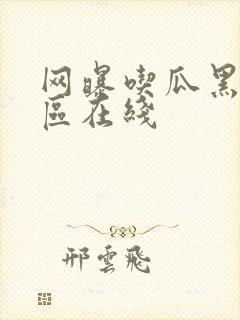 网曝喫瓜黑
區在綫
邢雲飛